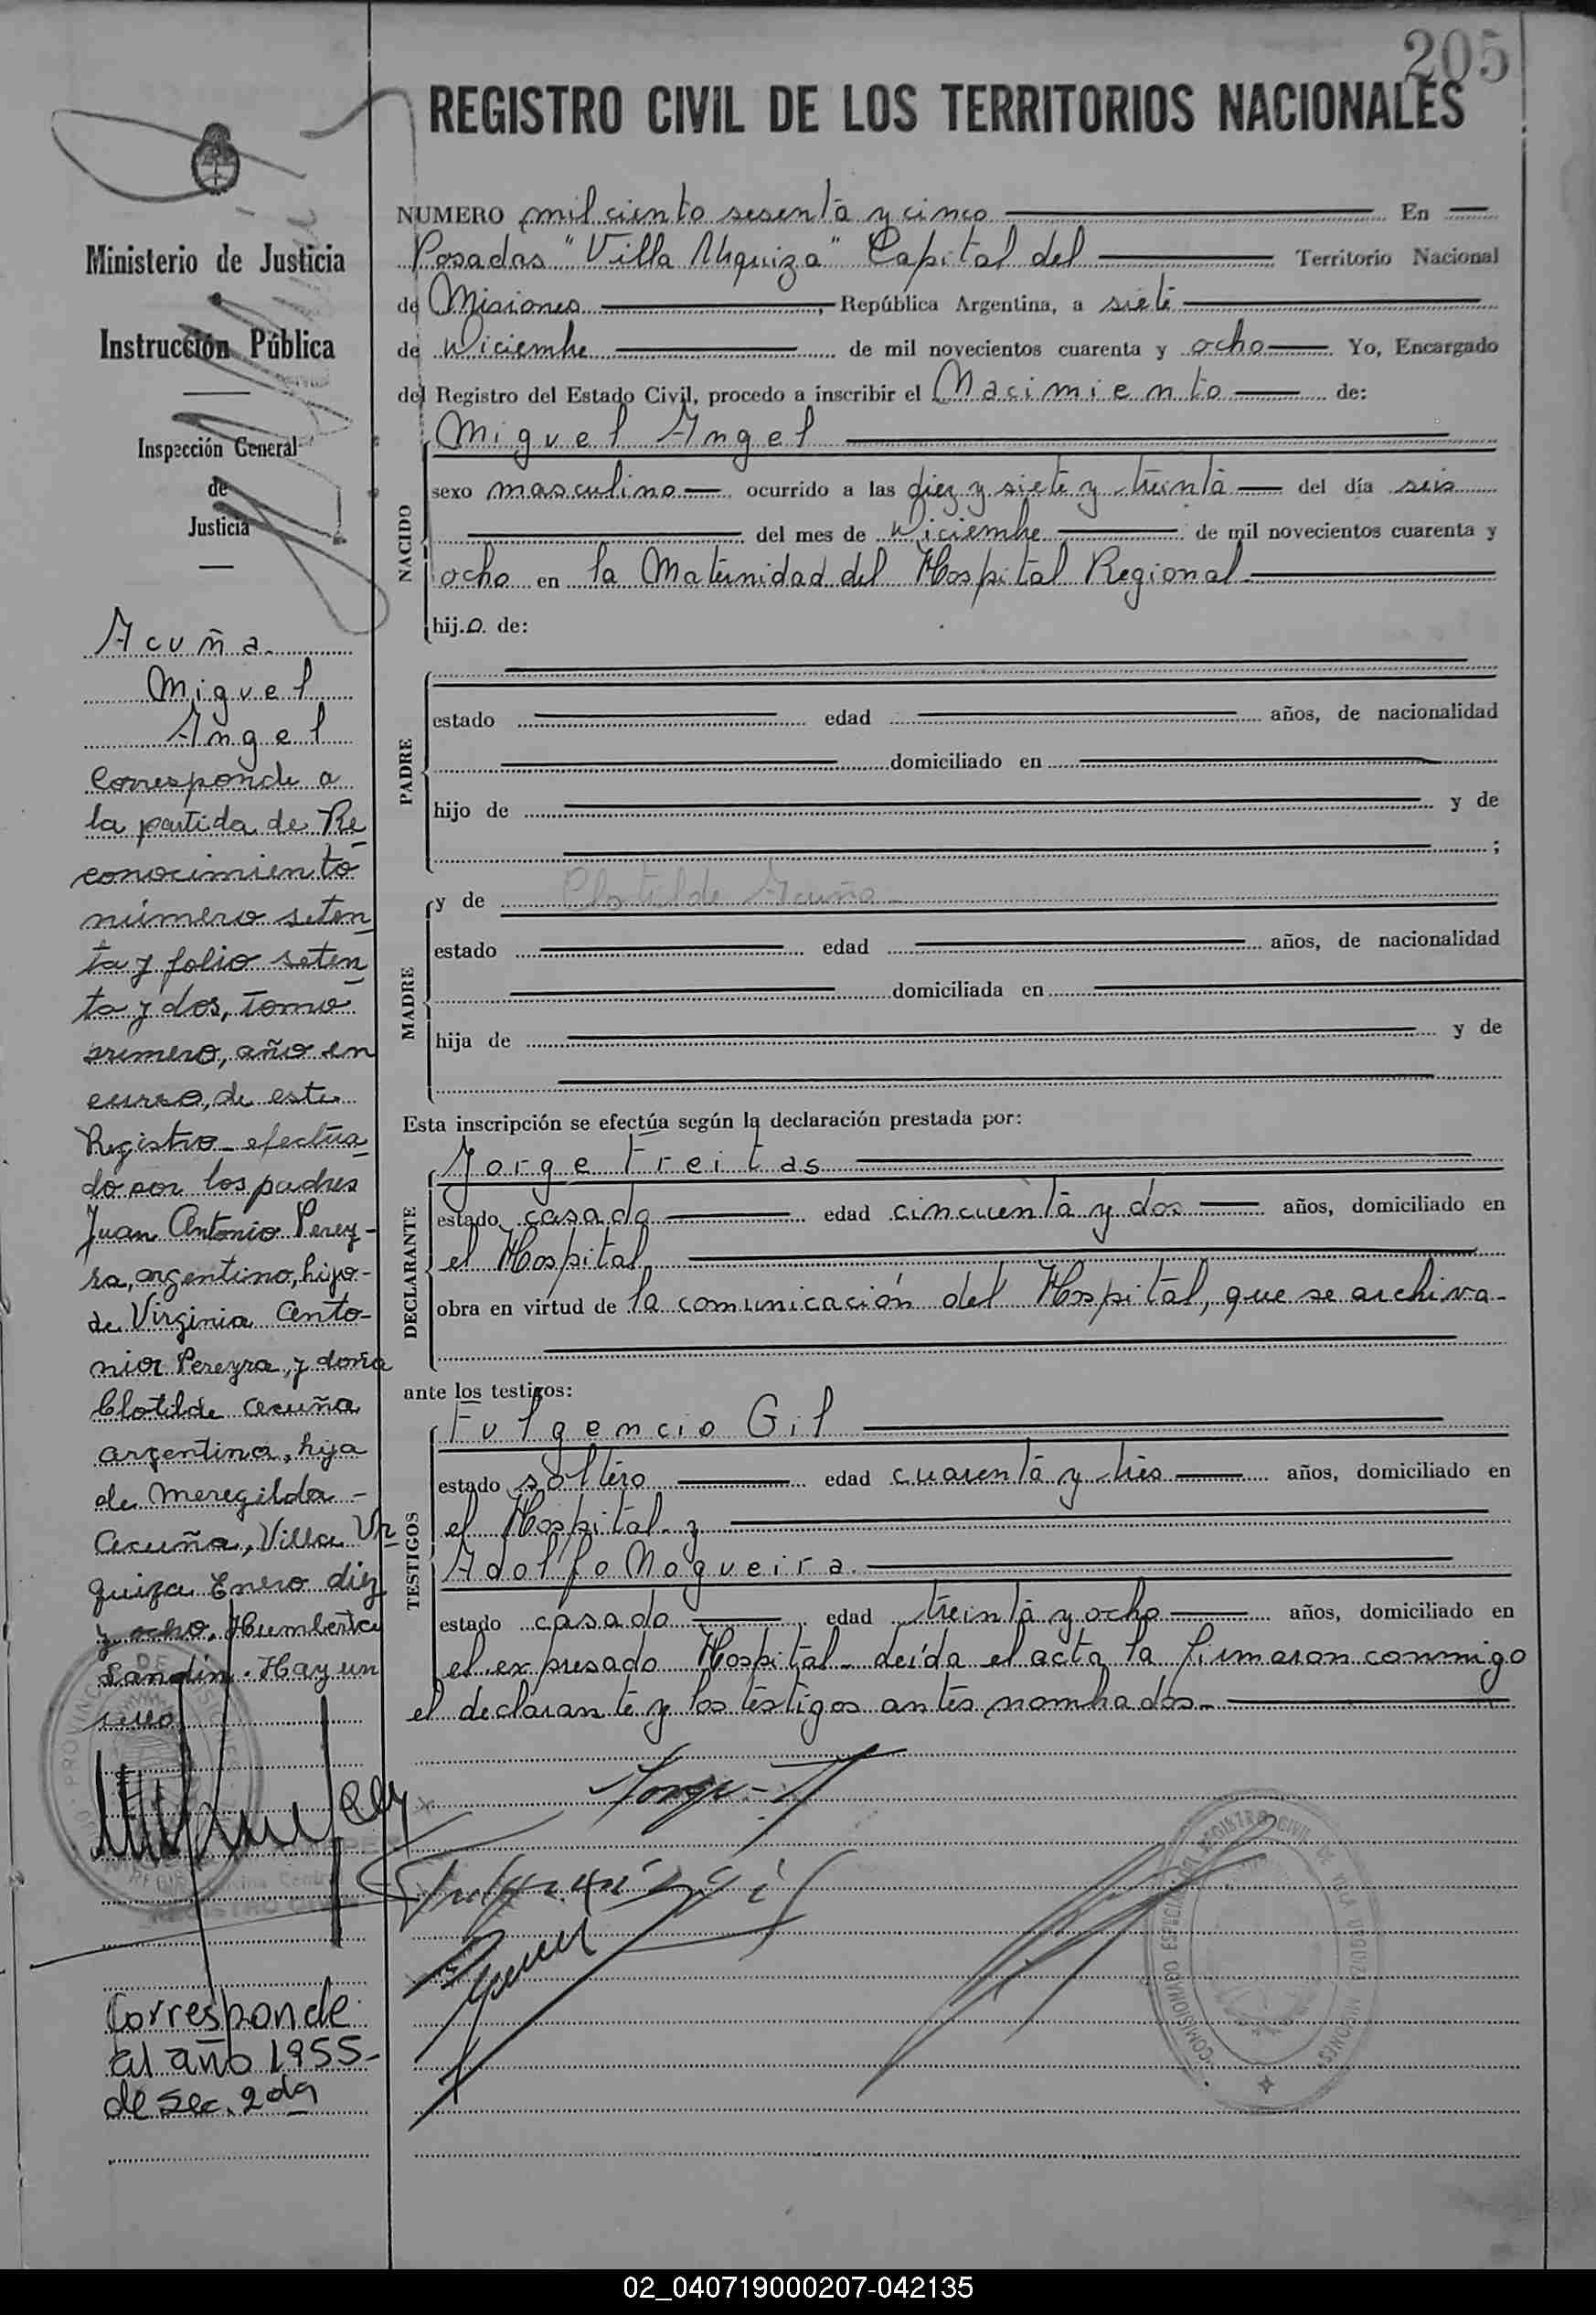 205
REGISTRO CIVIL DE LOS TERRITORIOS NACIONALES
Ministerio de Justicia
Instrucción Pública
Inspección General
de
Justicia
Acuña
Miguel
Angel
Corresponde a
la partida de Re
conocimiento
número seten
ta y folio seten
ta y dos, tomo
primero, año en
curso, de este
Registro efectua
do por los padres
Juan Antonio Perey-
ra, argentino, hijo-
de Virginia Anto-
nia Pereyra, y doña
Clotilde Acuña
argentina, hija
de Meregilda -
Acuña, Villa Ur
quiza Enero diez
y ocho. Humberto
Sandin. Hay un
sello
Corresponde
al año 1955-
de Sec. 2da
NUMERO mil ciento sesenta y cinco En
Posadas "Villa Urquiza" Capital del Territorio Nacional
de Misiones, República Argentina, a siete
de Diciembre de mil novecientos cuarenta y ocho Yo, Encargado
del Registro del Estado Civil, procedo a inscribir el Nacimiento de:
NACIDO
Miguel Angel
sexo masculino ocurrido a las diez y siete y treinta del día seis
del mes de Diciembre de mil novecientos cuarenta y
ocho en la Maternidad del Hospital Regional
hijo de:
PADRE
estado edad años, de nacionalidad
domiciliado en
hijo de y de
;
MADRE
y de Clotilde Acuña
estado edad años, de nacionalidad
domiciliada en
hija de y de
Esta inscripción se efectúa según la declaración prestada por:
DECLARANTE
Jorge Freitas
estado casado edad cincuenta y dos años, domiciliado en
el Hospital
obra en virtud de la comunicación del Hospital, que se archiva-
ante los testigos:
TESTIGOS
Fulgencio Gil
estado soltero edad cuarenta y tres años, domiciliado en
el Hospital y
Adolfo Nogueira.
estado casado edad treinta y ocho años, domiciliado en
el expresado Hospital - Leída el acta la firmaron conmigo
el declarante y los testigos antes nombrados-
COMISIONADO ESPECIAL DEL REGISTRO CIVIL DE VILLA URQUIZA MISIONES
02_040719000207-042135